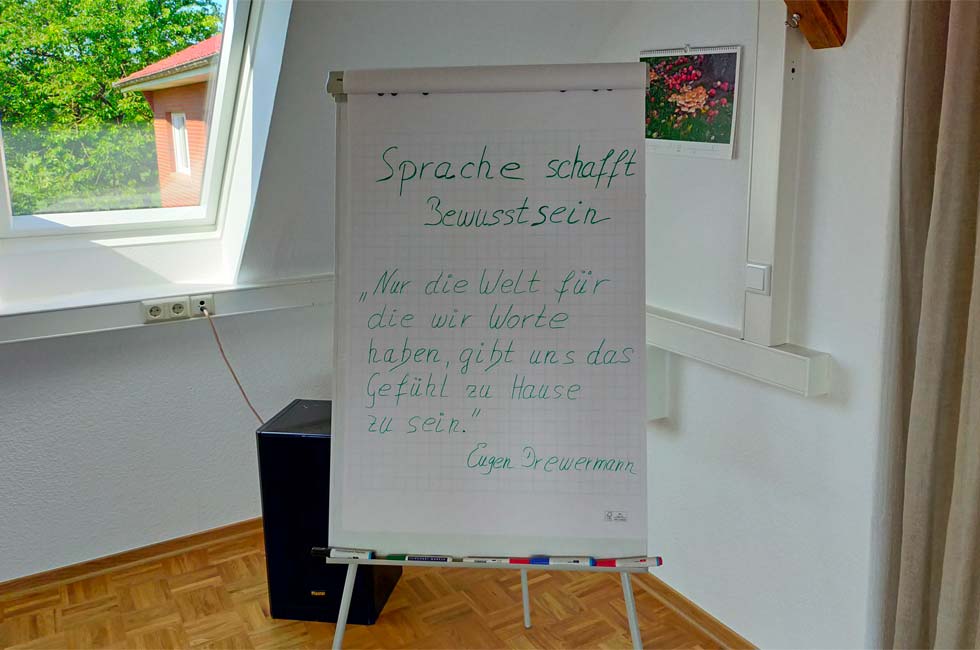 Sprache schafft
Bewusstsein
„Nur die Welt für
die wir Worte
haben, gibt uns das
Gefühl zu Hause
zu sein."
Eugen Drewermann